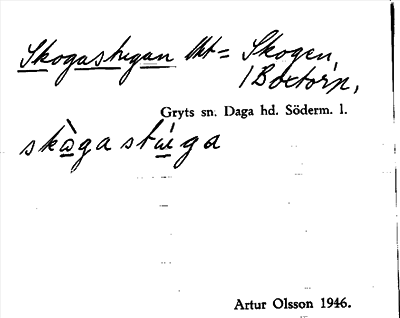 Skogastugan lht = Skogen,
1 Boxtorp,
Gryts sn. Daga hd. Söderm. l.
skògastúga
Artur Olsson 1946.